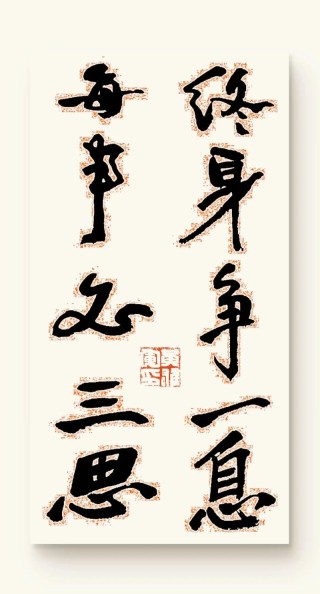 终身争一息
每事必三思